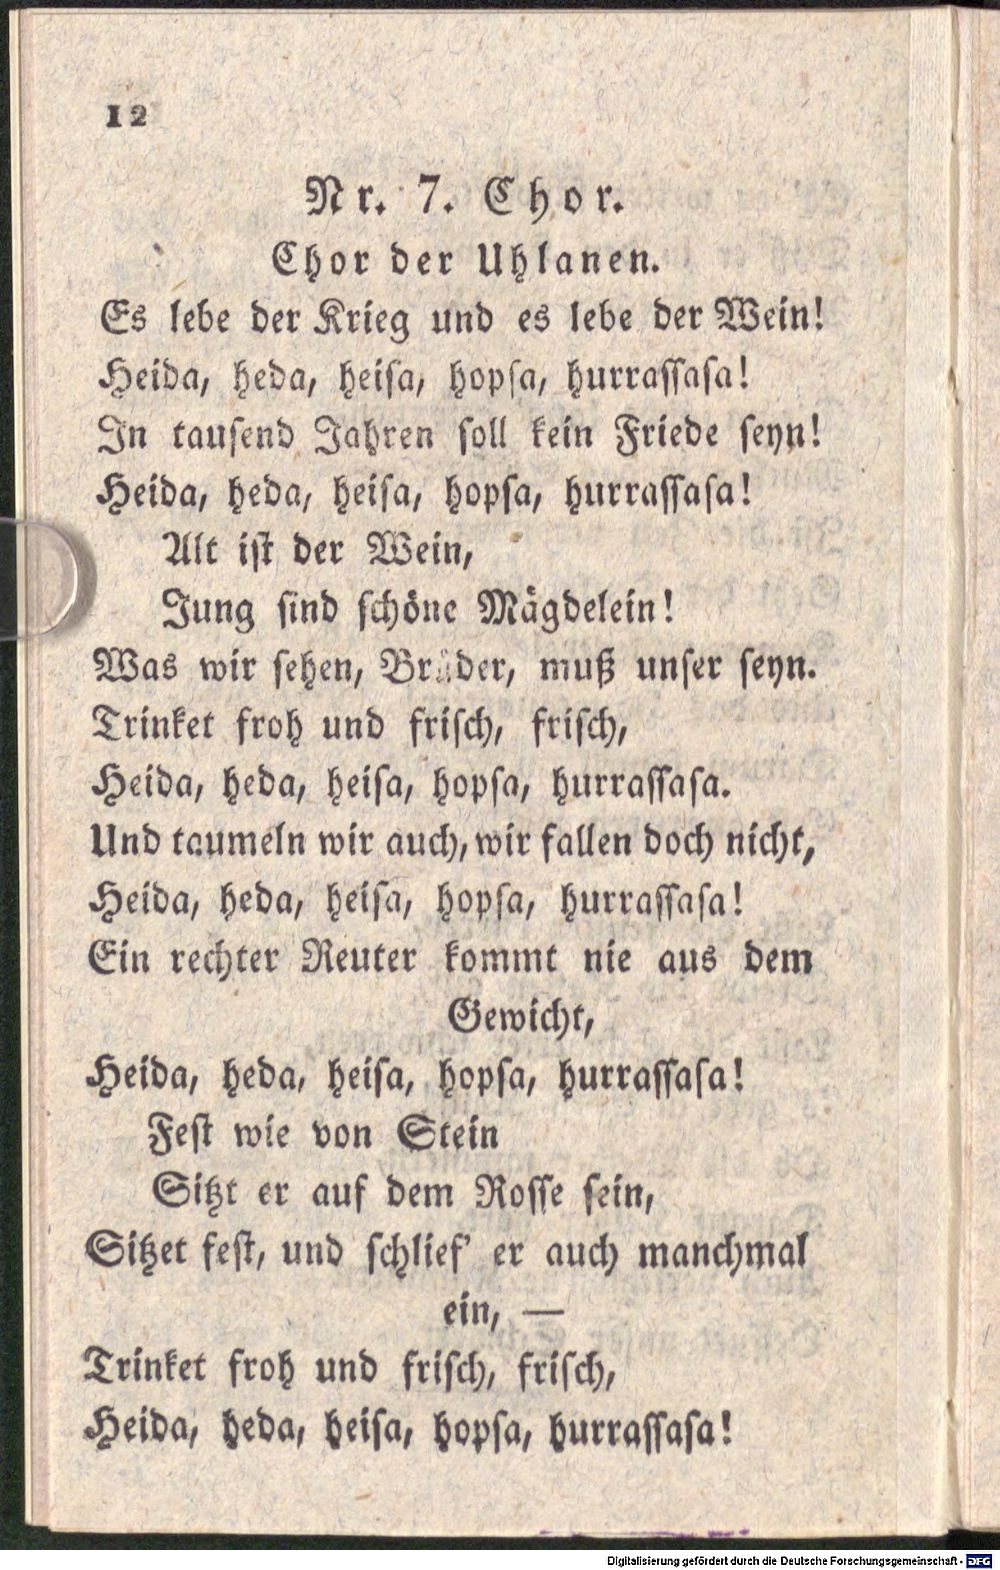 12
Nr. 7. Chor.
Chor der Uhlanen.
Es lebe der Krieg und es lebe der Wein!
Heida, heda, heisa, hopsa, hurrassasa!
In tausend Jahren soll kein Friede seyn!
Heida, heda, heisa, hopsa, hurrassasa!
Alt ist der Wein,
Jung sind schöne Mägdelein!
Was wir sehen, Brüder, muß unser seyn.
Trinket froh und frisch, frisch,
Heida, heda, heisa, hopsa, hurrassasa.
Und taumeln wir auch, wir fallen doch nicht,
Heida, heda, heisa, hopsa, hurrassasa!
Ein rechter Reuter kommt nie aus dem
Gewicht,
Heida, heda, heisa, hopsa, hurrassasa!
Fest wie von Stein
Sitzt er auf dem Rosse sein,
Sitzet fest, und schlief' er auch manchmal
ein, —
Trinket froh und frisch, frisch,
Heida, heda, heisa, hopsa, hurrassasa!
Digitalisierung gefördert durch die Deutsche Forschungsgemeinschaft - DFG